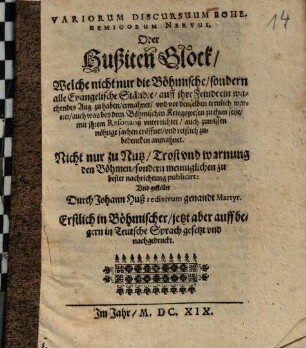 14
VARIORUM DISCURSUUM BOHE-
MEMICORUM NERVUS,
Oder
Hußiten Glock/
Welche nicht nur die Böhmische/ sondern
alle Evangelische Stände/ auff ihre Feinde ein wa-
chendes Aug zu haben/ ermahnet/ und vor denselben trewlich war-
net/ auch was bey dem Böhmischen Kriegswesen zu thun seye/
mit ihrem
nöhtige sachen eröffnet/ und reifflich zu-
bedencken anmahnet.
Nicht nur zu Nutz/ Trost und warnung
den Böhmen/ sondern menniglichen zu
bester nachrichtung publicirt:
Und gestellet
Durch Johann Huß redivivum genandt Martyr.
Erstlich in Böhmischer/ jetzt aber auff be-
gern in Teutsche Sprach gesetzt und
nachgedruckt.
Im Jahr/ M. DC. XIX.